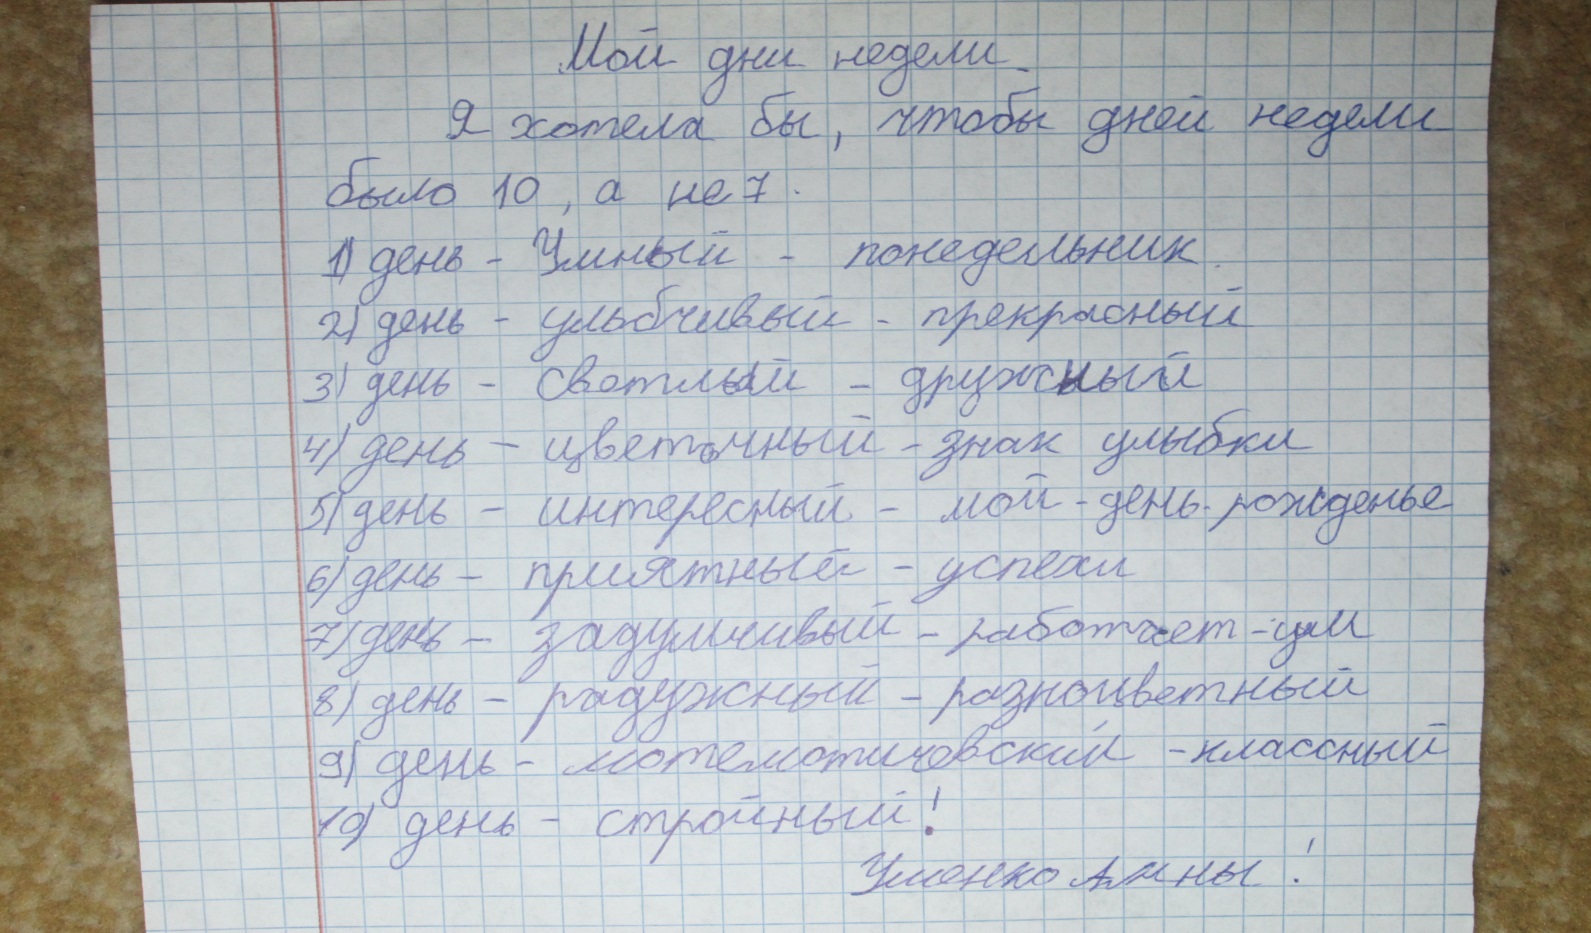 Мой дни недели
Я хотела бы, чтобы дней недели
было 10, а не 7.
1) день - Умный - понедельник.
2) день - улыбчивый - прекрасный
3) день - светлый - дружный
4) день - цветочный - знак улыбки
5) день - интересный - мой - день рожденье
6) день - приятный - успехи
7) день - задумчивый - работает - ум
8) день - радужный - разноцветный
9) день - математический - классный
10) день - стройный!
Уменко Анны!